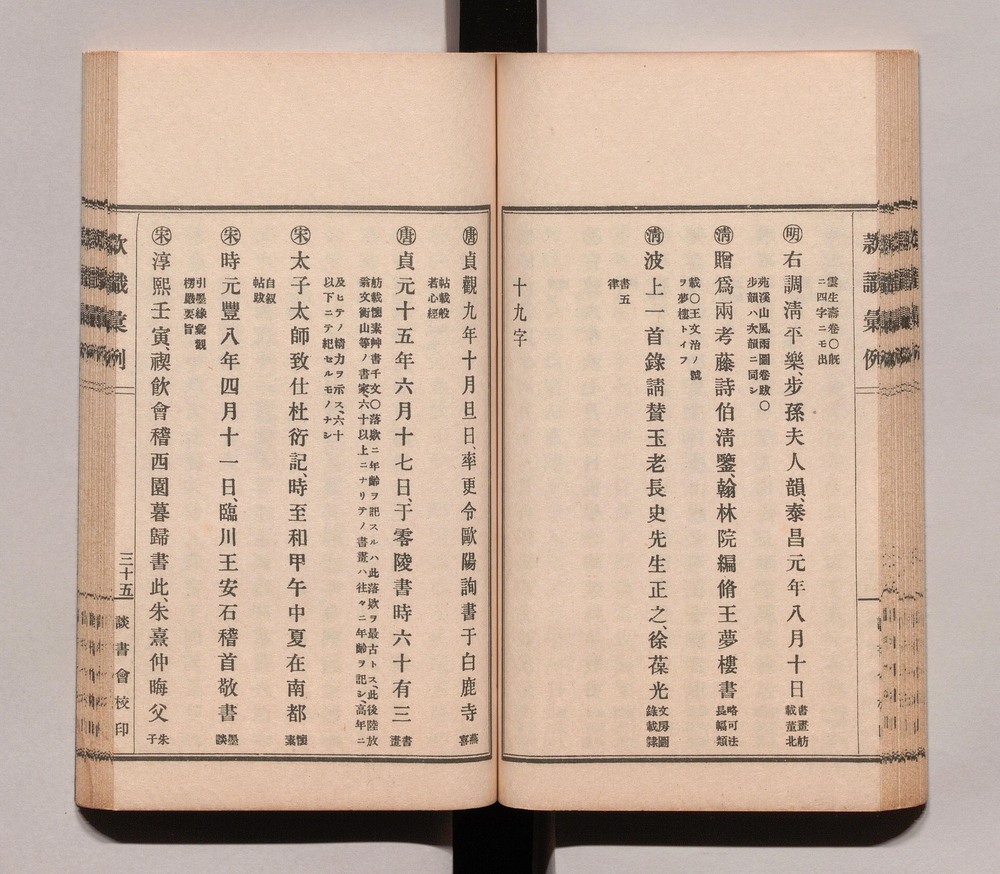 款識彙例
雲生壽卷〇既
ニ四字ニモ出
明 右調淸平樂、步孫夫人韻、泰昌元年八月十日
書畫舫
載董北
苑溪山風雨圖卷跋〇
步韻ハ次韻ニ同シ
淸 贈爲兩考藤詩伯淸鑒、翰林院編脩王夢樓書
略可法
長幅類
載〇王文治ノ號
ヲ夢樓トイフ
淸 波上一首錄請賛玉老長史先生正之、徐葆光
文房圖
錄載隷
書五
律
十九字
唐 貞觀九年十月旦日、率更令歐陽詢書于白鹿寺
燕
喜
帖載般
若心經
唐 貞元十五年六月十七日、于零陵書時六十有三
書
畫
舫載懷素艸書千文〇落欵ニ年齡ヲ記スルハ此落欵ヲ最古トス、此後陸放
翁文衡山等ノ書家、六十以上ニナリテノ書畫ハ往々ニ年齡ヲ記シ、高年ニ
及ヒテノ精力ヲ示ス、六十
以下ニテ紀セルモノナシ
宋 太子太師致仕杜衍記、時至和甲午中夏在南都
懷
素
自叙
帖跋
宋 時元豐八年四月十一日、臨川王安石稽首敬書
墨
談
引墨緣彙觀
楞嚴要旨
宋 淳熙壬寅、禊飮會稽西園暮歸書此、朱熹仲晦父
朱
子
款識彙例
三十五
談書會校印